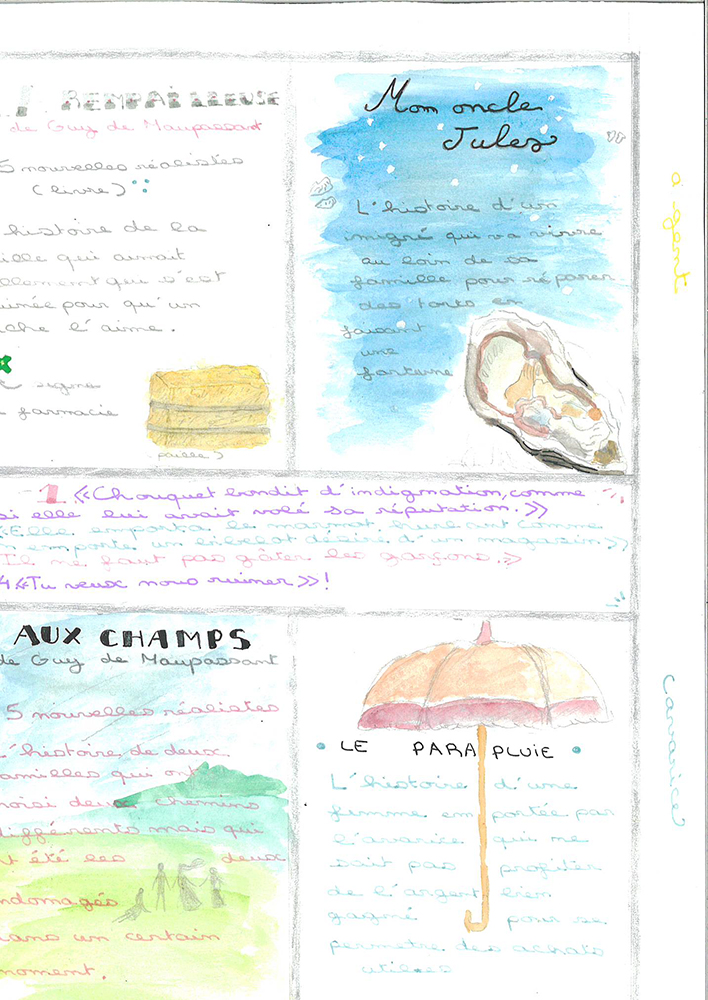 REMPAILLEUSE
de Guy de Maupassant
5 nouvelles réalistes
(livre)
histoire de la
ille qui aimait
ellement qui s'est
uinée pour qu'un
che l'aime.
signe
farmacie
paille)
Mon oncle
Jules
L'histoire d'un
imigré qui va vivre
au loin de sa
famille pour réparer
des torts en
faisant
une
fortune
à agent
1 «Chouquet bondit d'indignation, comme
si elle lui avait volé sa réputation.»
«Elle emporta le marmot hurlant comme
on emporte un bibelot désiré d'un magasin»
Il ne faut pas gâter les garçons.»
4 «Tu veux nous ruiner»!
AUX CHAMPS
de Guy de Maupassant
5 nouvelles réalistes
L'histoire de deux
familles qui ont
hoisi deux chemins
différents mais qui
t été les deux
ndomagés
dans un certain
moment.
LE PARAPLUIE
L'histoire d'une
femme emportée par
l'avarice qui ne
sait pas profiter
de l'argent bien
gagné pour se
permetre des achats
utiles
L'avarice